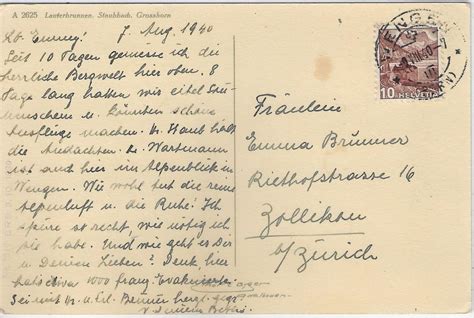 A 2625 Lauterbrunnen, Staubbach, Grosshorn
7. Aug. 1940
Lb. Emmy!
Seit 10 Tagen geniesse ich die
herrliche Bergwelt hier oben. 8
Tage lang hatten wir eitel Son-
nenschein u. konnten schöne
Ausflüge machen. Hr. Haub hält
die Andachten. Hr. Wartmann
ist auch hier im Alpenblick in
Wengen. Wie wohl tut die reine
Alpenluft u. die Ruhe! Ich
spüre so recht, wie nötig ich
sie habe. Und wie geht es Dir
u. Deinen Lieben? Denk hier
hats etwa 1000 franz. Evakuierte.
Sei mit Hr. u. Frl. Benner herzl. gegr.
v. Deinem
WENGEN
10 HELVETIA
Fräulein
Emma Brunner
Riethofstrasse 16
Zollikon
b/Zürich